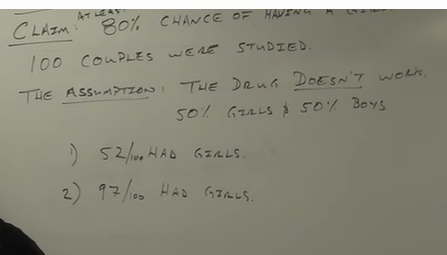 CLAIM: AT LEAST 80% CHANCE OF HAVING A
100 COUPLES WERE STUDIED.
THE ASSUMPTION: THE DRUG DOESN'T WORK.
50% GIRLS & 50% BOYS
1) 52/100 HAD GIRLS.
2) 97/100 HAD GIRLS.